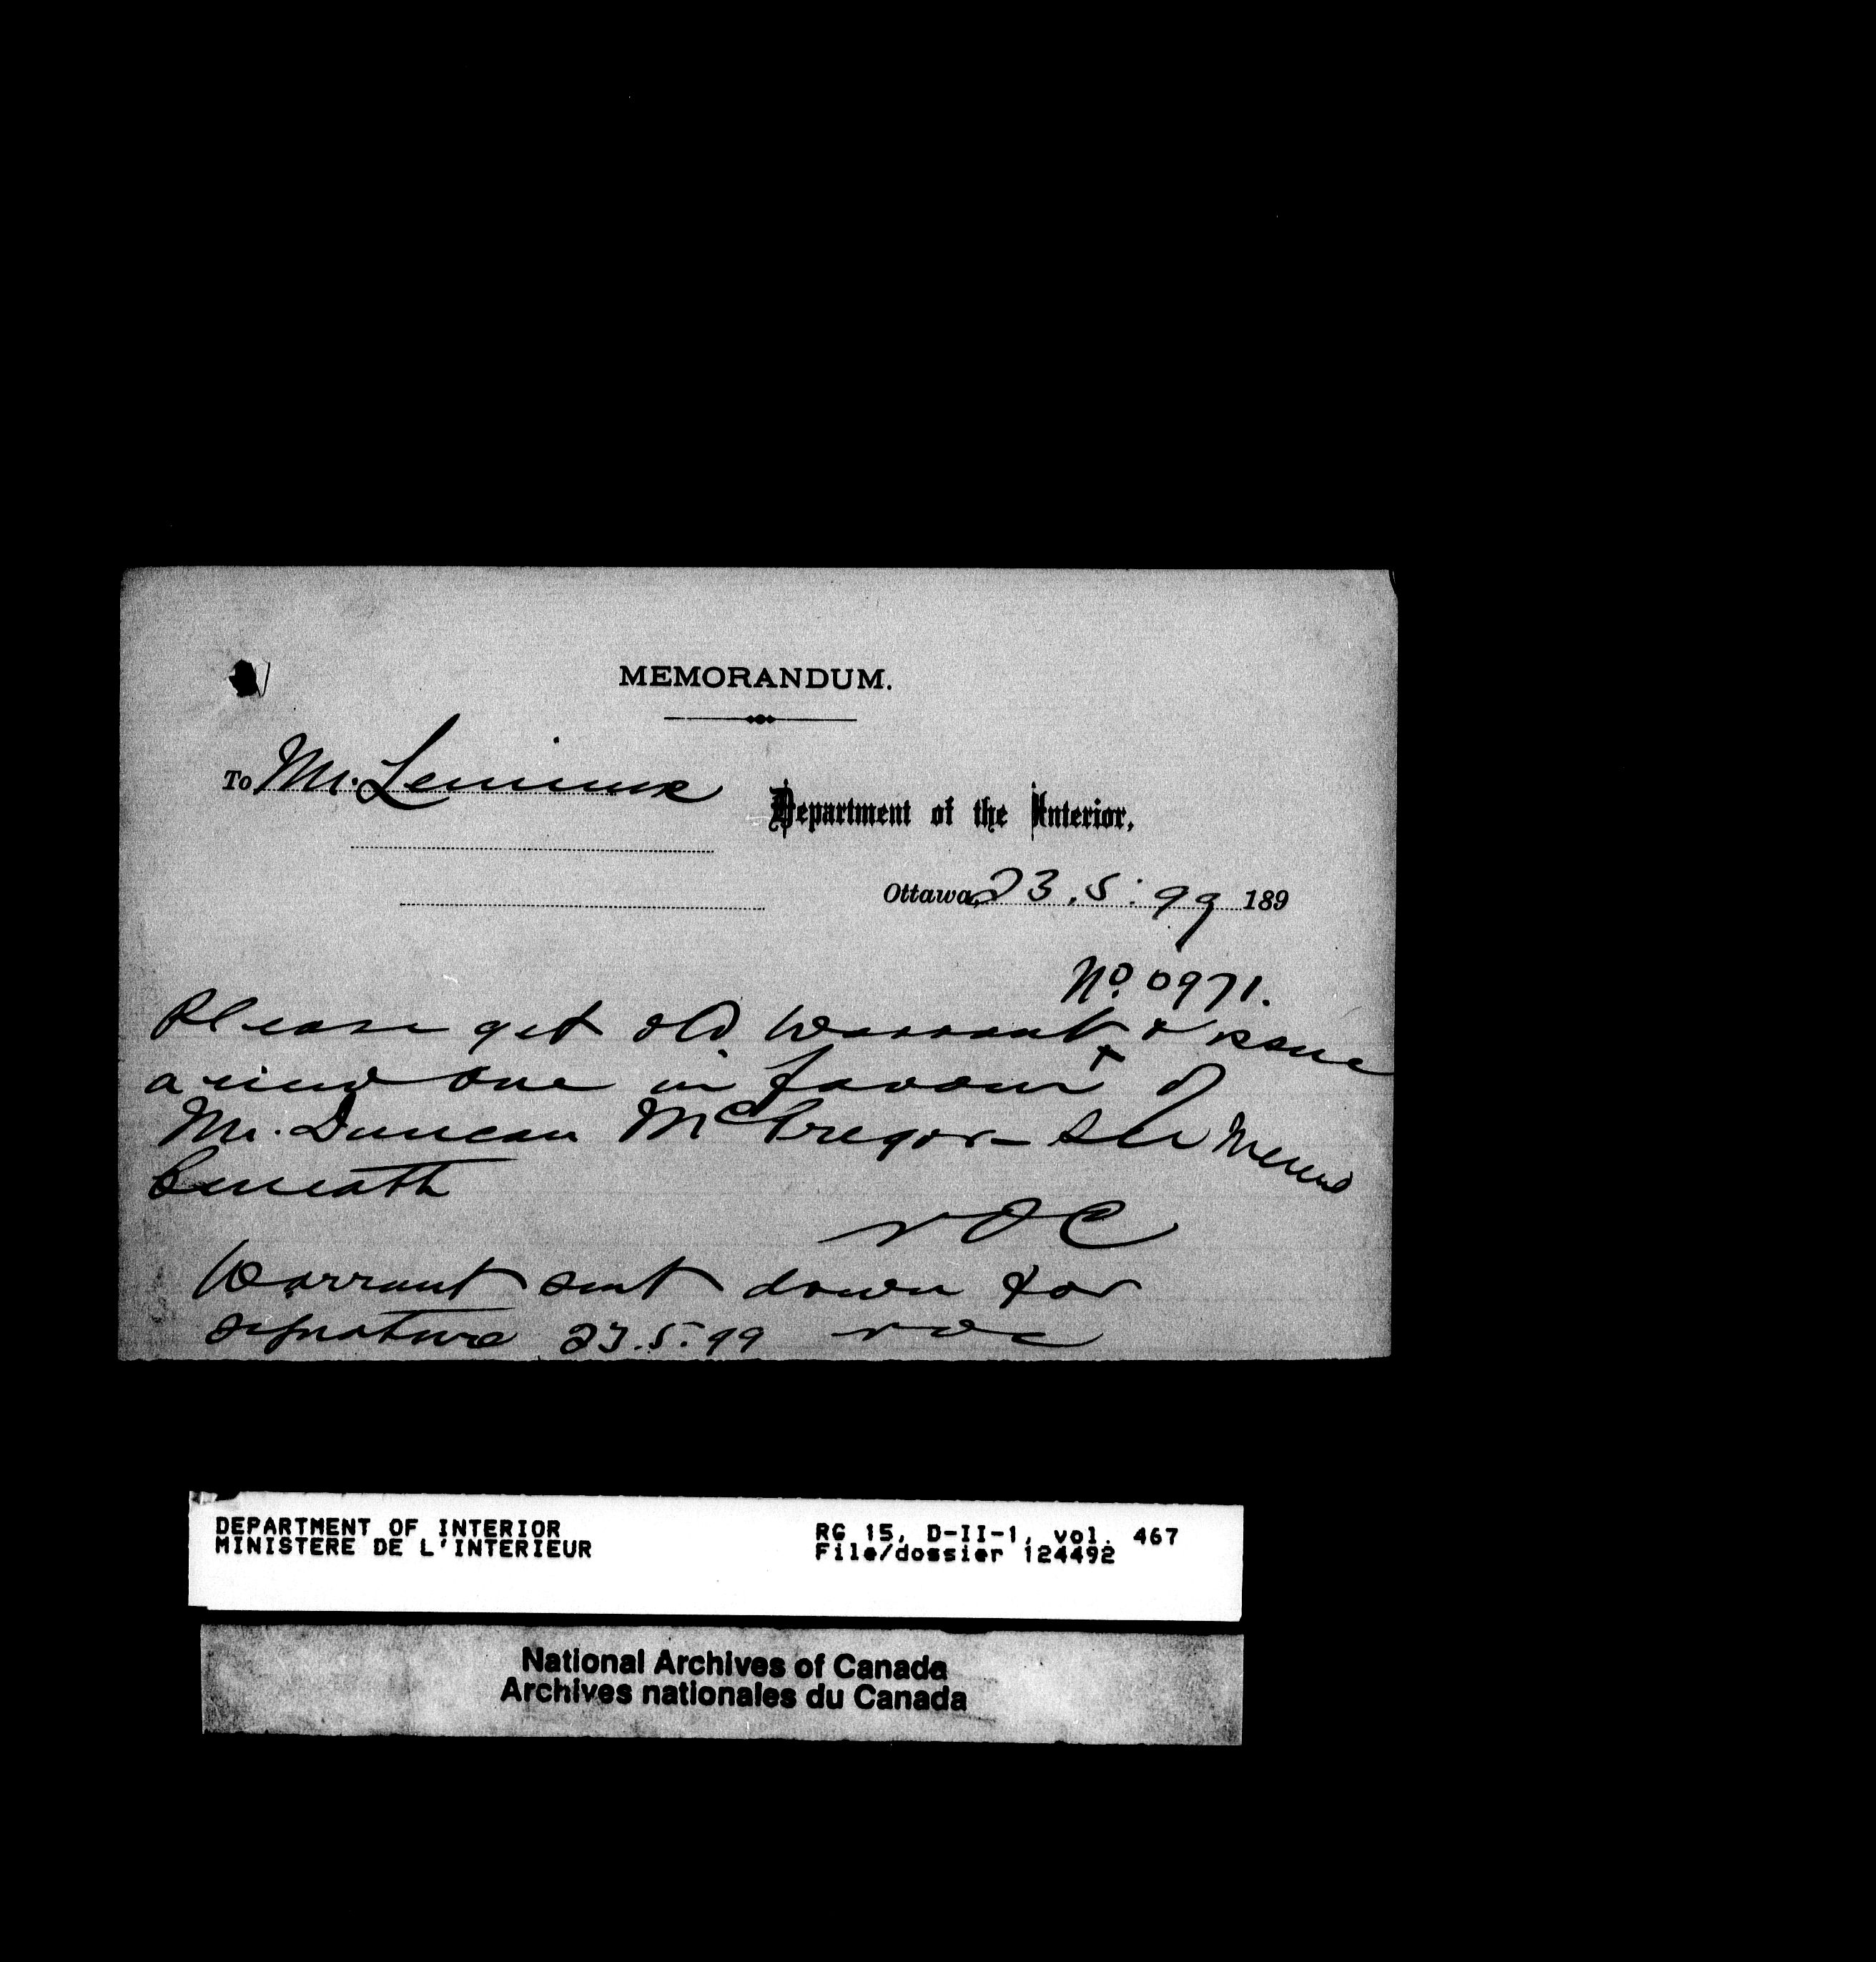 MEMORANDUM.
To Mr. Lemieux
Department of the Interior,
Ottawa, 23.5.99 189
No. 0971.
Please get old warrant & issue
a new one in favour of
Mr. Duncan McGregor - see Memo
beneath
Warrant sent down for
signature 23.5.99
DEPARTMENT OF INTERIOR
MINISTERE DE L'INTERIEUR
RG 15, D-II-1, vol. 467
File/dossier 124492
National Archives of Canada
Archives nationales du Canada